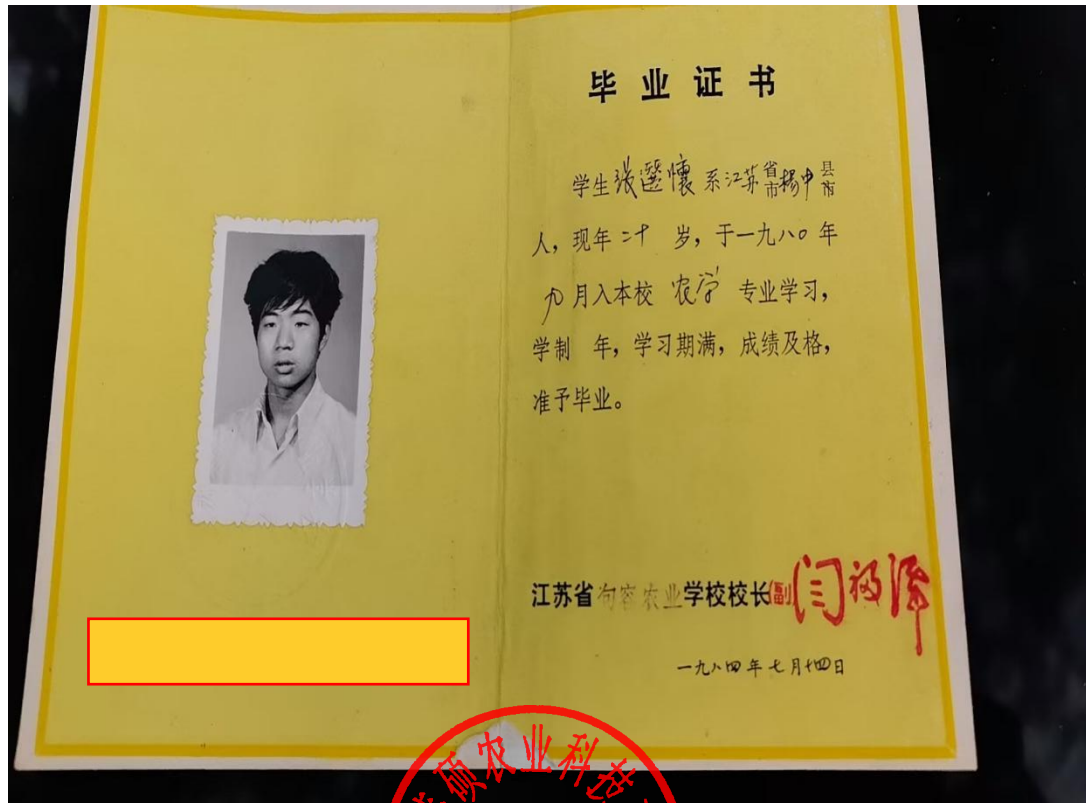 毕业证书
学生张選懷系江苏省市揚中县市
人，现年二十 岁，于一九八〇年
九月入本校 农学 专业学习，
学制 年，学习期满，成绩及格，
准予毕业。
江苏省句容农业学校校长(副)闫福泽
一九八四年七月十四日
硕农业科技